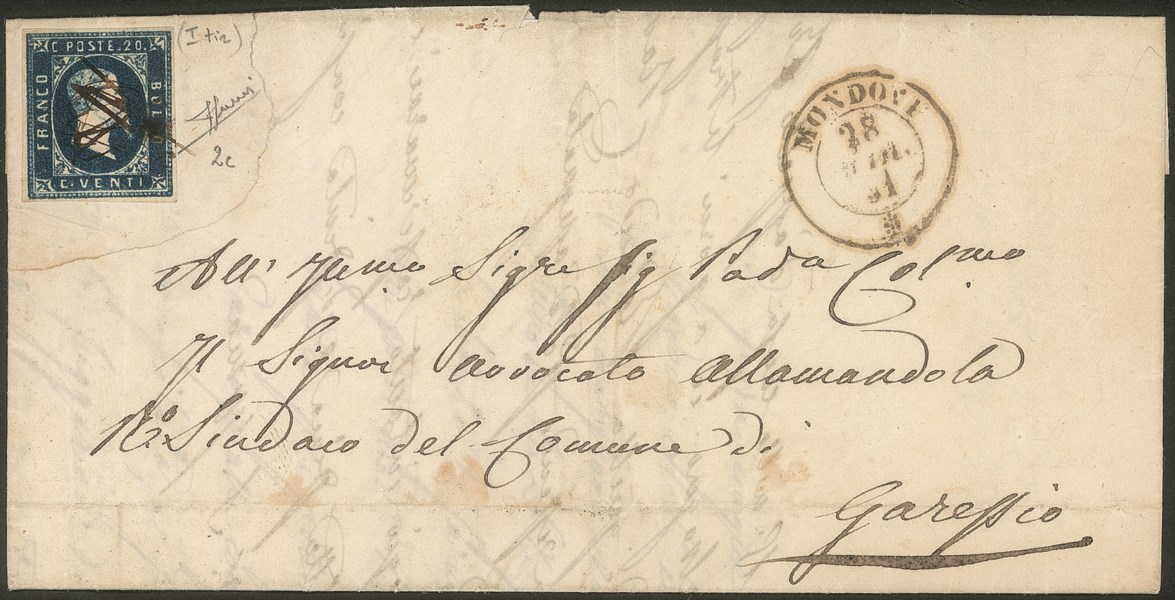 C. POSTE. 20.
FRANCO
BOLLO
C. VENTI
(I tir)
2c
MONDOVI
28
LUG.
51
All' Illmo Sigre Sig Pad.a Col.mo
Il Signor Avvocato Allamandola
R.o Sindaco del Comune di
Garessio